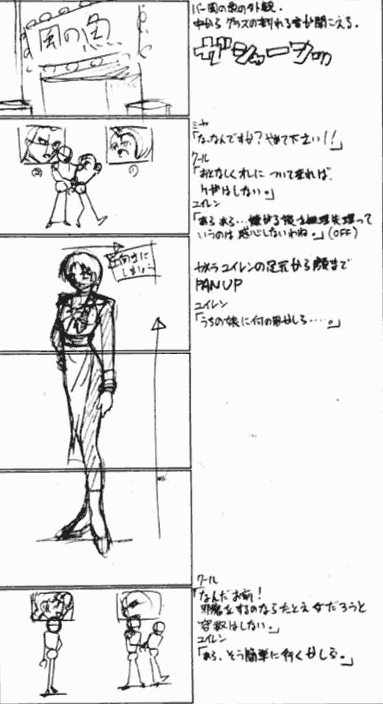 風の魚
バー風の魚の外観。
中からグラスの割れる音が聞こえる。
ザシャーンッ
ミヤ
「な、なんですか?やめて下さい!!」
クール
「おとなしくオレについて来れば、
ケガはしない。」
ユイレン
「あらあら…嫌がる娘を無理矢理って
いうのは感心しないわね。」(OFF)
カメラ ユイレンの足元から顔まで
PAN UP
ユイレン
「うちの娘に何の用かしら……。」
クール
「なんだお前!
邪魔をするのならたとえ女だろうと
容赦はしない。」
ユイレン
「あら、そう簡単に行くかしら。」